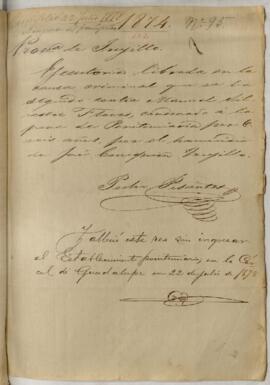 1874. Nº 95
Prov.a de Trujillo.
Ejecutoria librada en la
causa criminal que se ha
seguido contra Manuel
Flores, condenado á la
pena de Penitenciaría por
seis años, por el homicidio
de José Trujillo.
Falleció este reo sin ingresar
al Establecimiento penitenciario, en la Cár
cel de Guadalupe en 22 de julio de 1878